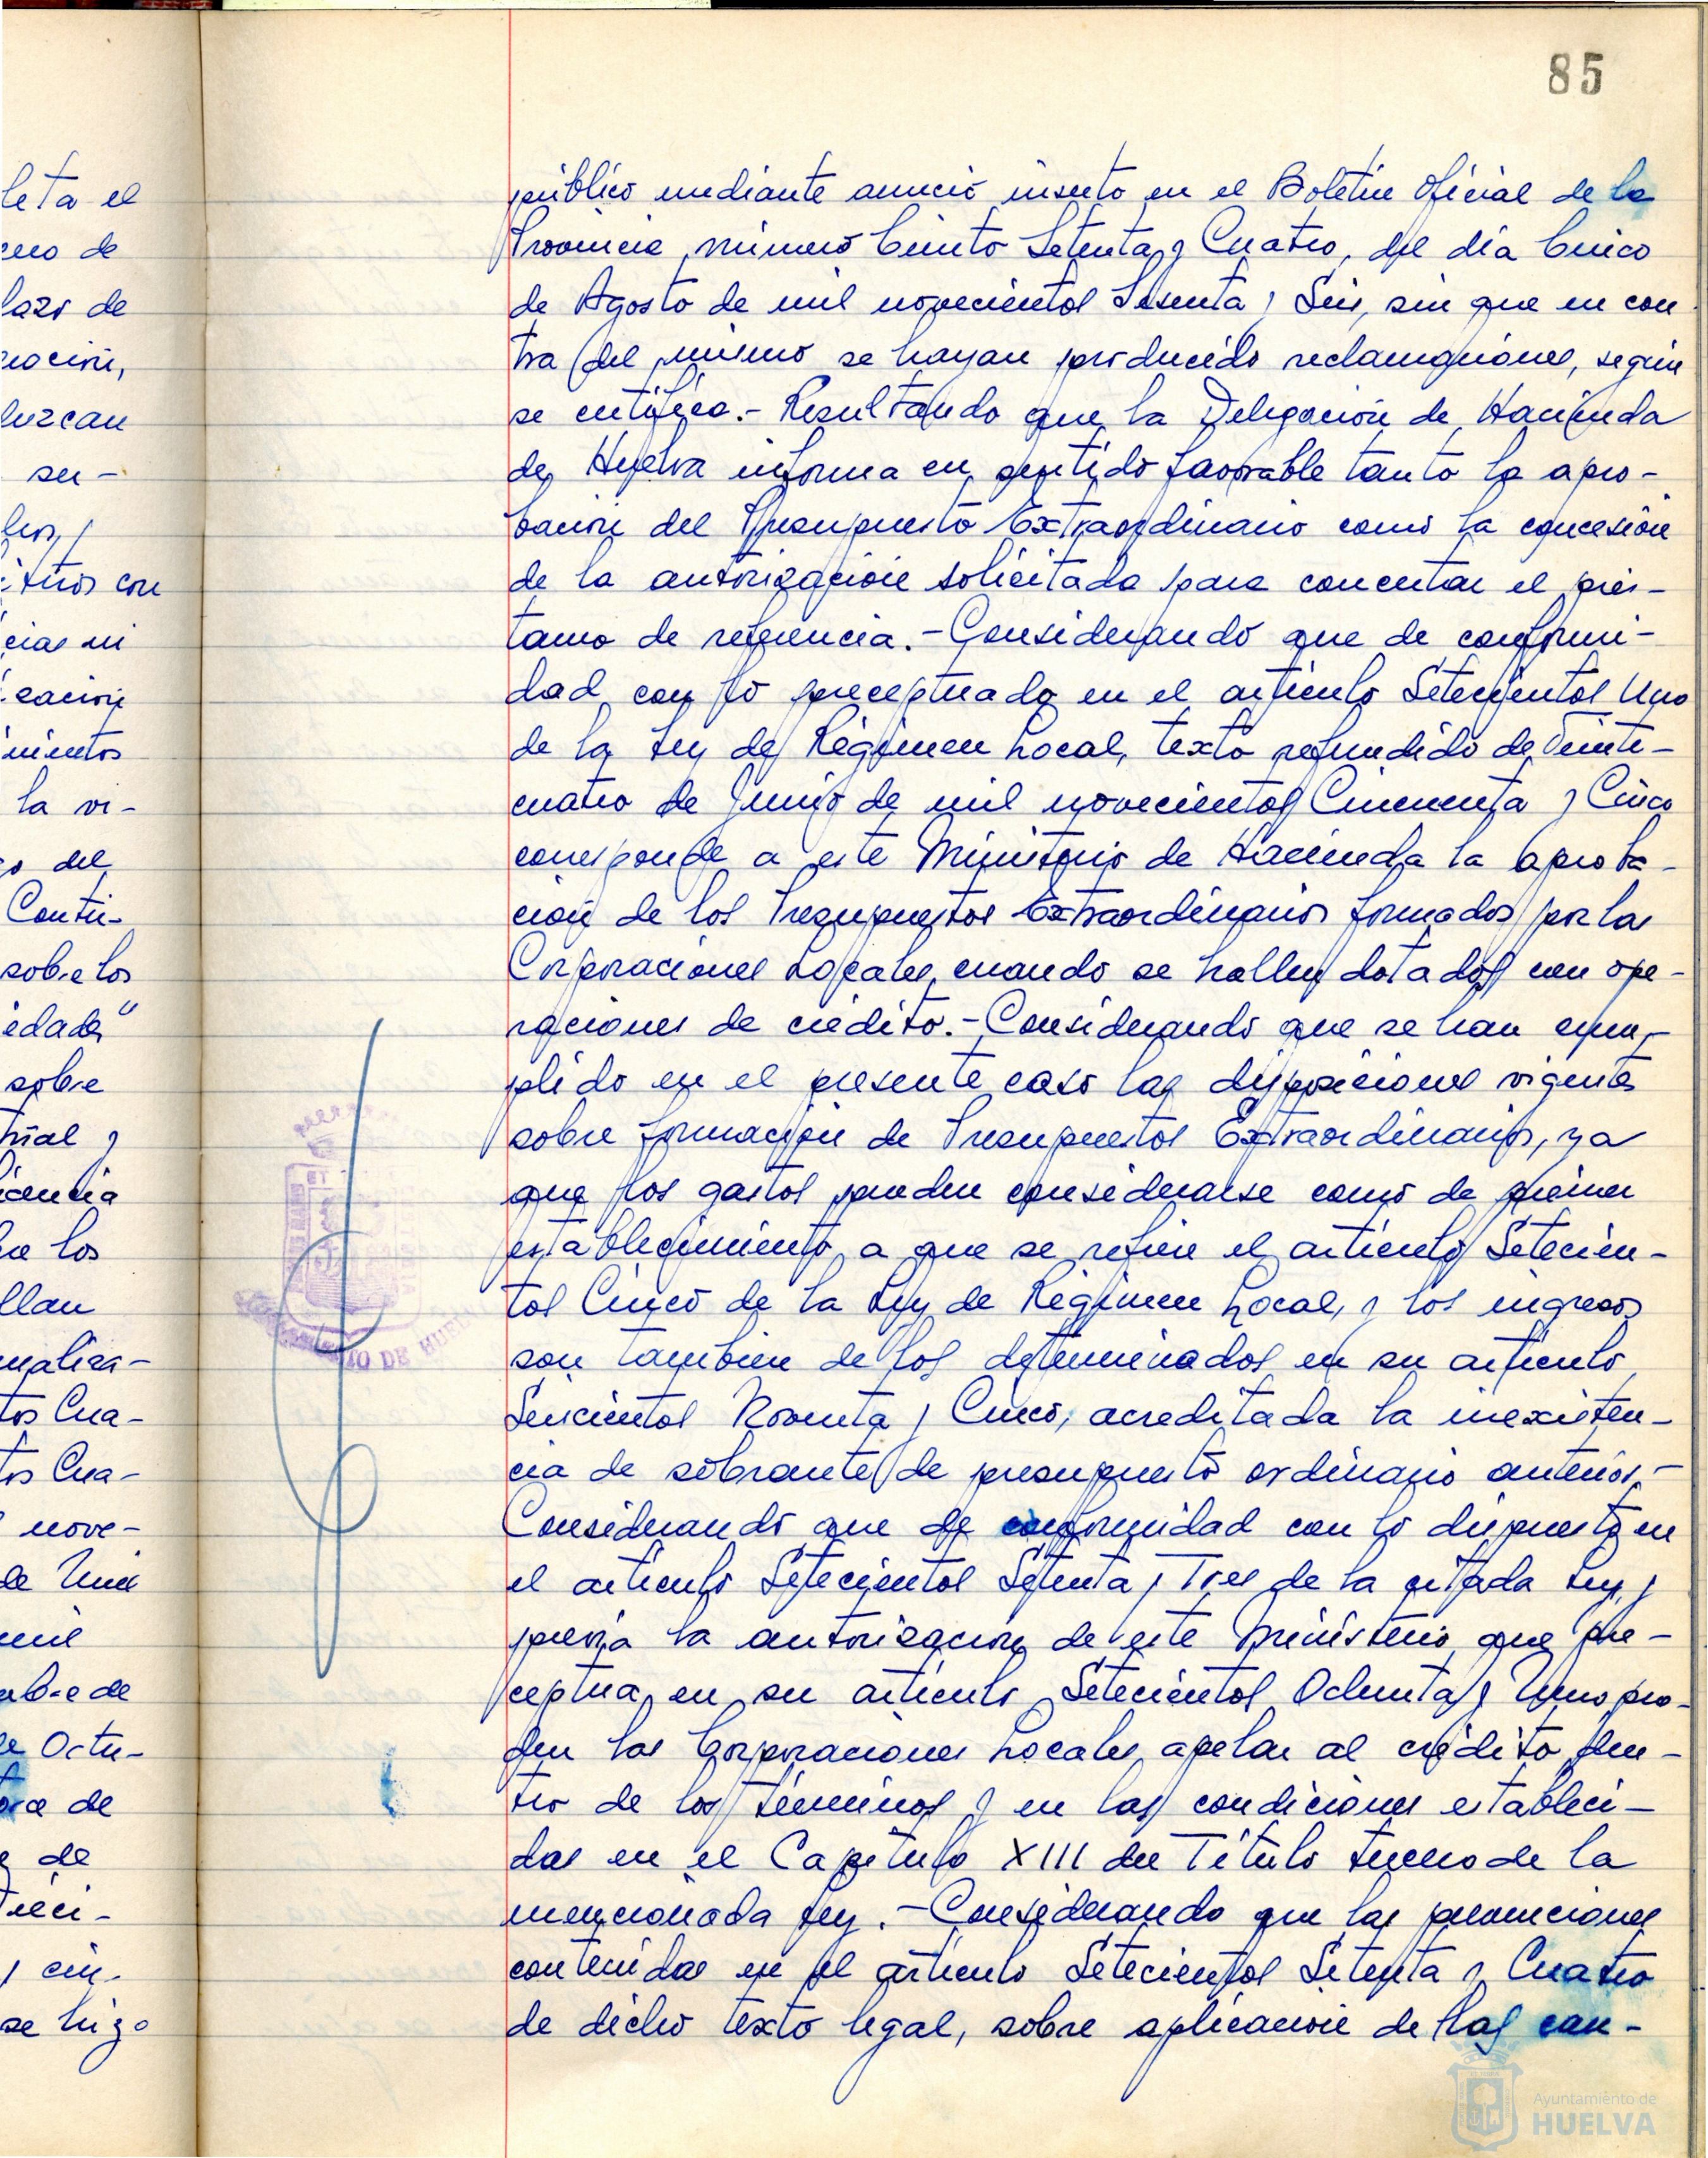 85
público mediante anuncio inserto en el Boletín Oficial de la
Provincia, número Ciento Setenta y Cuatro, del día Cinco
de Agosto de mil novecientos Sesenta y Seis, sin que en con-
tra del mismo se hayan producido reclamaciones, según
se certifica.- Resultando que la Delegación de Hacienda
de Huelva informa en sentido favorable tanto la apro-
bación del Presupuesto Extraordinario como la concesión
de la autorización solicitada para concertar el prés-
tamo de referencia.- Considerando que de conformi-
dad con lo preceptuado en el artículo Setecientos Uno
de la Ley de Régimen Local, texto refundido de Veinti-
cuatro de Junio de mil novecientos Cincuenta y Cinco
corresponde a este Ministerio de Hacienda la aproba-
ción de los Presupuestos Extraordinarios formados por las
Corporaciones Locales, cuando se hallen dotados con ope-
raciones de crédito.- Considerando que se han cum-
plido en el presente caso las disposiciones vigentes
sobre formación de Presupuestos Extraordinarios, ya
que los gastos pueden considerarse como de primer
establecimiento a que se refiere el artículo Setecien-
tos Cinco de la Ley de Régimen Local, y los ingresos
son también de los determinados en su artículo
Seiscientos Noventa y Cinco, acreditada la inexisten-
cia de sobrante de presupuesto ordinario anterior.-
Considerando que de conformidad con lo dispuesto en
el artículo Setecientos Setenta y Tres de la citada Ley, y
previa la autorización de este Ministerio que pre-
ceptua en su artículo Setecientos Ochenta y Uno pro-
den las Corporaciones Locales apelar al crédito den-
tro de los términos y en las condiciones estableci-
das en el Capítulo XIII del Título tercero de la
mencionada Ley.- Considerando que las prevenciones
contenidas en el artículo Setecientos Setenta y Cuatro
de dicho texto legal, sobre aplicación de las can-
Ayuntamiento de
HUELVA